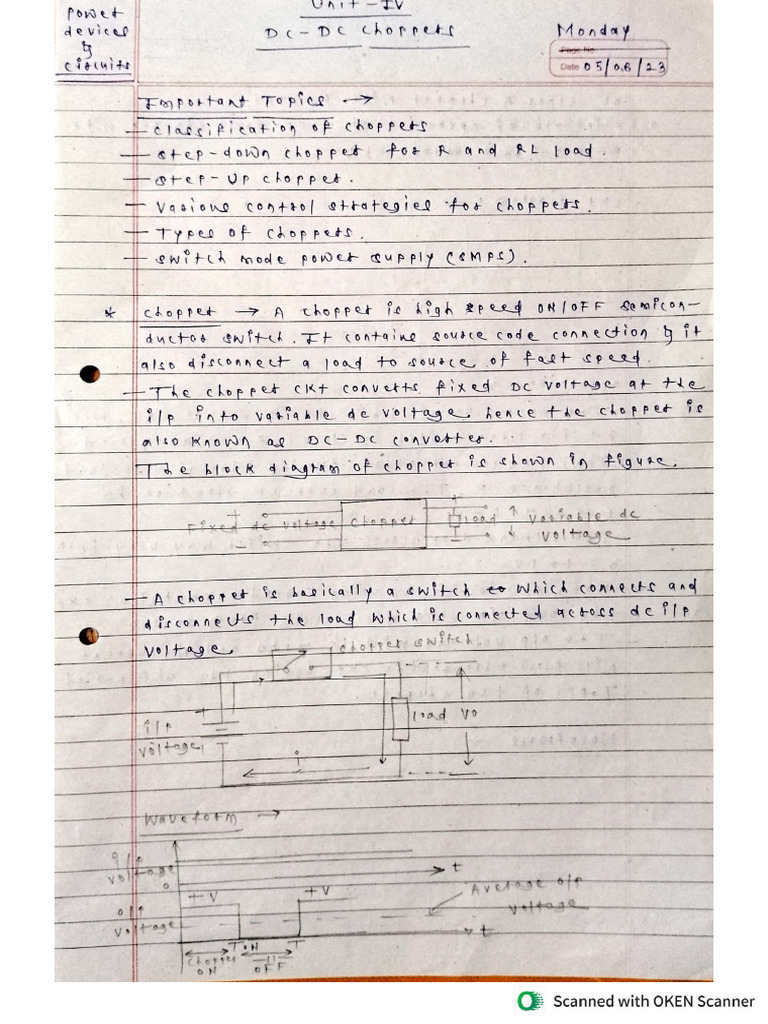 Power
devices
&
circuits
Unit-IV
DC-DC Choppers
Monday
Page No.
Date 05/06/23
Important Topics →
- Classification of choppers
- Step-down chopper for R and RL load.
- Step-Up chopper.
- Various control strategies for choppers.
- Types of choppers.
- Switch mode power supply (SMPS).
* Chopper → A chopper is high speed ON/OFF semicon-
ductor switch. It contains source code connection & it
also disconnect a load to source of fast speed.
- The chopper ckt converts fixed DC voltage at the
i/p into variable dc voltage, hence the chopper is
also known as DC-DC converter.
The block diagram of chopper is shown in figure.
+ Fixed dc voltage -
Chopper
+ load -
Variable dc
voltage
- A chopper is basically a switch to which connects and
disconnects the load which is connected across dc i/p
voltage.
chopper switch
+
i/p
voltage
i
load
Vo
Waveform →
i/p
voltage
0
t
o/p
voltage
+V
+V
Average o/p
voltage
TON
T
t
Chopper
ON
-11-
OFF
Scanned with OKEN Scanner